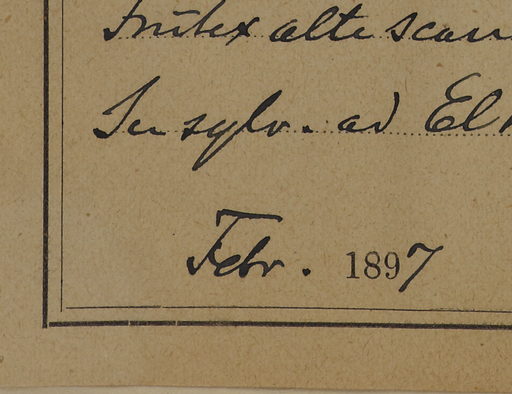 Frutex alte scan
In sylv. ad El
Febr. 1897